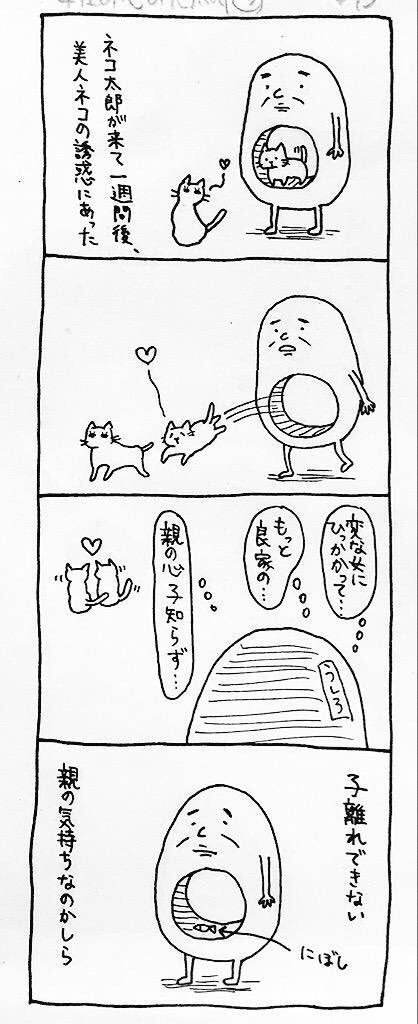 ネコ太郎が来て一週間後、
美人ネコの誘惑にあった
変な女に
ひっかかって…
もっと
良家の…
親の心子知らず…
うしろ
子離れできない
親の気持ちなのかしら
にぼし